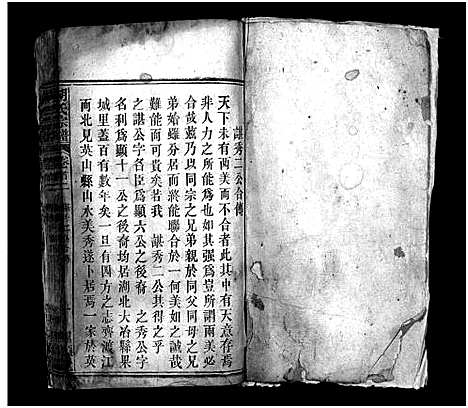 諶秀二公合傳
天下未有两美而不合者此其中有天意存焉
非人力之所能爲也如其强爲豈所謂兩美必
合哉蓋乃以同宗之兄弟親於同父同母之兄
弟始雖分居而終能聯合於一何美如之誠哉
難能而可貴矣若我 諶秀二公其得之乎
之諶公字名臣爲顯六公之後裔 之秀公字
名利爲顯十一公之後裔均居湖北大冶縣果
城里蓋百有數年矣一旦四方之志齊渡江
而北見英山縣山水美秀遂卜居焉一家於英